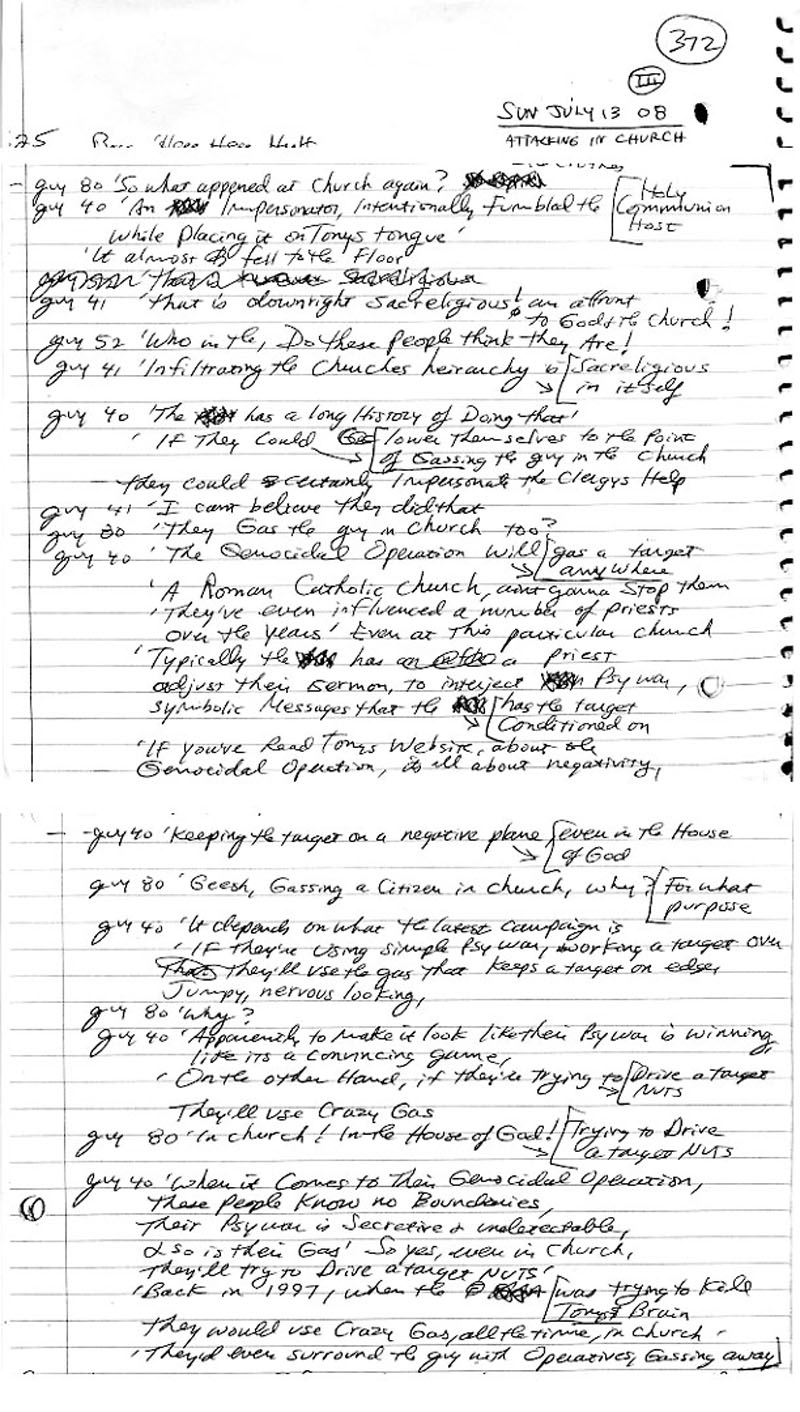 372
III
SUN JULY 13 08
ATTACKING IN CHURCH
:25
- guy 80 'So what appened at Church again?
guy 40 'An Impersonator, Intentionally Fumblad the [Holy Communion Host
while placing it on Tonys tongue'
'It almost fell to the Floor
guy 41 'that is downright Sacreligious! an affront
to God & the Church!
guy 52 'Who in the, Do these People think they Are!
guy 41 'Infiltrating the Churches heirarchy is [Sacreligious
in itself
guy 40 'The has a long History of Doing that'
'IF They Could [lower themselves to the Point
of Gassing the guy in the Church
they could certainly Impersonate the Clergys Help
guy 41 'I cant believe they did that
guy 80 'They Gas the guy in Church too?
guy 40 'The Genocidal Operation will [gas a target
anywhere
'A Roman Catholic Church, aint gonna Stop them
'They've even influenced a number of priests
over the years' Even at This particular church
'Typically the has a Priest
adjust their Sermon, to interject Psy war,
symbolic Messages that the [has the target
Conditioned on
'If you've Read Tonys Website, about the
Genocidal Operation, its all about negativity,
- guy 40 'Keeping the target on a negative plane [even in the House
of God
guy 80 'Geesh, Gassing a Citizen in church, why? [For what
purpose
guy 40 'It depends on what the latest Campaign is
'IF they're using simple Psy war, working a target over
They'll use the gas that Keeps a target on edge,
Jumpy, nervous looking,
guy 80 'Why?
guy 40 'Apparently to Make it look like their Psy war is winning,
like its a convincing game,
'On the other Hand, if they're trying to [Drive a target
NUTS
They'll use Crazy Gas
guy 80 'In church! In the House of God! [Trying to Drive
a target NUTS
guy 40 'When it Comes to Their Genocidal Operation,
These People Know no Boundaries,
Their Psy war is Secretive & undetectable,
& so is their Gas' So yes, even in Church,
They'll try to Drive a target NUTS'
'Back in 1997, when the [was trying to Kill
Tonys Brain
They would use Crazy Gas, all the time, in church'
'They'd even surround the guy with Operatives, Gassing away]